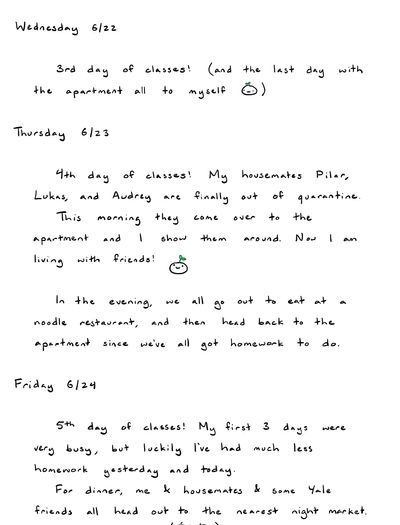 Wednesday 6/22
3rd day of classes! (and the last day with
the apartment all to myself )
Thursday 6/23
4th day of classes! My housemates Pilar,
Lukas, and Audrey are finally out of quarantine.
This morning they come over to the
apartment and I show them around. Now I am
living with friends!
In the evening, we all go out to eat at a
noodle restaurant, and then head back to the
apartment since we've all got homework to do.
Friday 6/24
5th day of classes! My first 3 days were
very busy, but luckily I've had much less
homework yesterday and today.
For dinner, me & housemates & some Yale
friends all head out to the nearest night market.